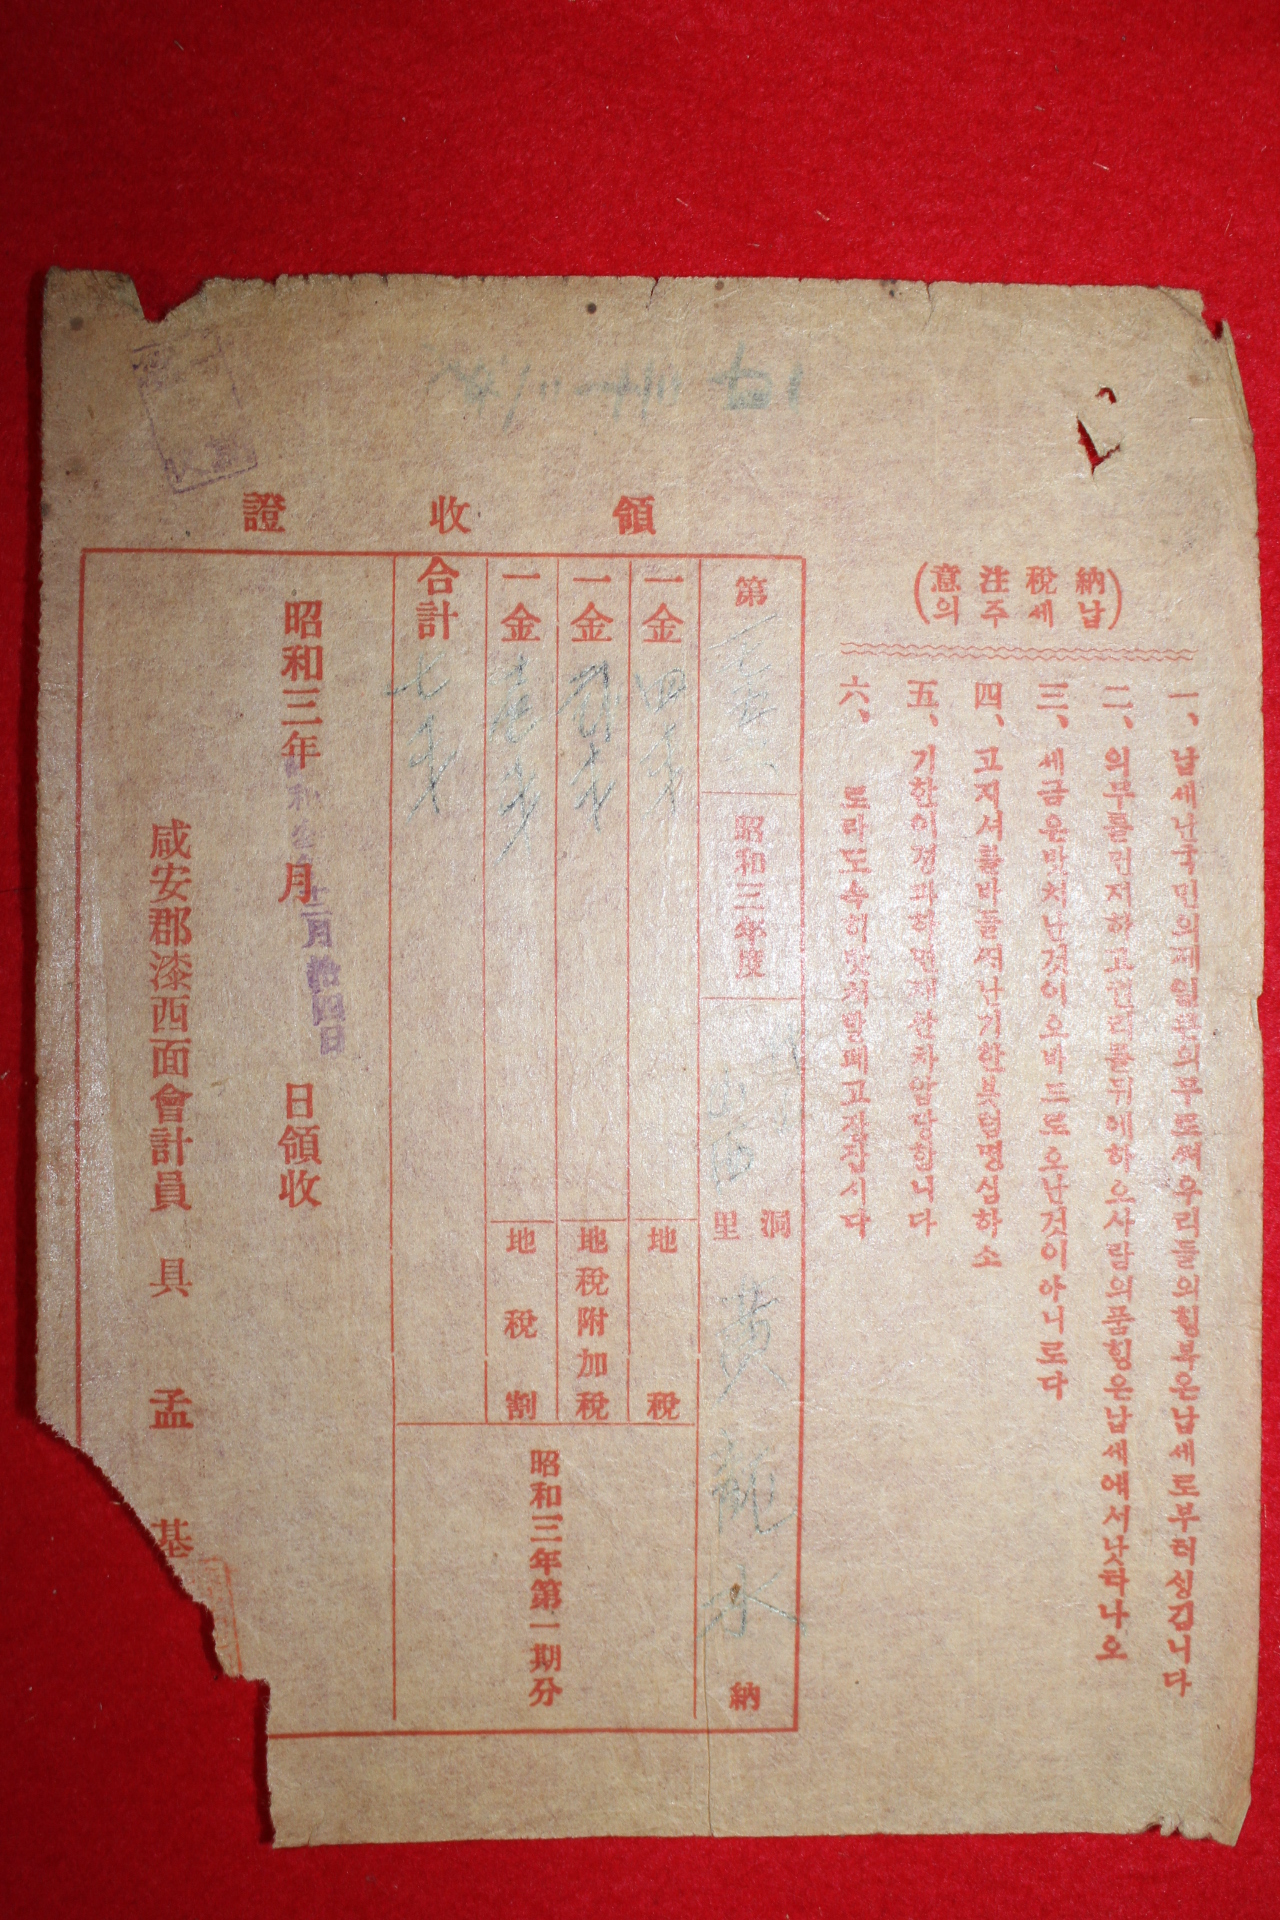 領收證
(納稅注意)
(납세주의)
一、납세난국민의제일큰의무로써우리들의힝부은납세로부허싱깁니다
二、의무를먼저하고권리를뒤에하으사람의품힝은납세에서낫하나오
三、세금은밧처난것이오바드로오난것이아니로다
四、고지서를바들써난기한붓텀명심하소
五、기한이경과하면재산차압당합니다
六、로라도속히닷처할페고자잡시다
第 昭和三年度 洞里 黃龍水 納
一金 四 地稅
一金 地稅附加稅
一金 地稅割
合計 七
昭和三年第一期分
昭和三年 月 日領收
十二月拾四日
咸安郡漆西面會計員 具孟基